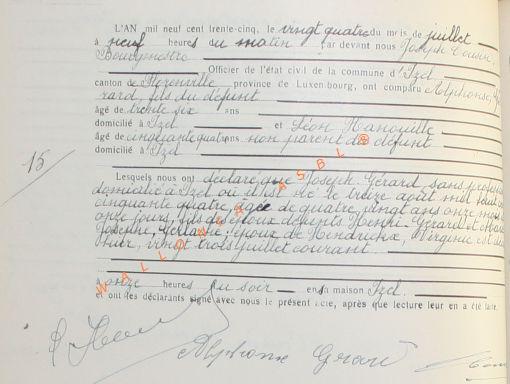 L'AN mil neuf cent trente-cinq, le vingt quatre du mois de juillet
à neuf heures du matin par devant nous Joseph
Bourgmestre
Officier de l'état civil de la commune d'Izel
canton de Florenville province de Luxembourg, ont comparu Alphonse, Gé
rard, fils du défunt
âgé de trente six ans
domicilié à Izel et Léon Hanouille
âgé de cinquante quatre ans non parent du défunt
domicilié à Izel
15
Lesquels nous ont déclaré que Joseph Gérard sans profession
domicilié à Izel où il est né le treize août mil huit cent
cinquante quatre, âgé de quatre vingt ans onze mois
onze jours, fils des époux défunts Henri Gérard et
Joseph, époux de Hendrickx, Virginie est décédé
hier, vingt trois juillet courant
à onze heures du soir en sa maison Izel
et ont les déclarants signé avec nous le présent acte, après que lecture leur en a été faite.
Alphonse Gérard
WALLONICA ASBL ©